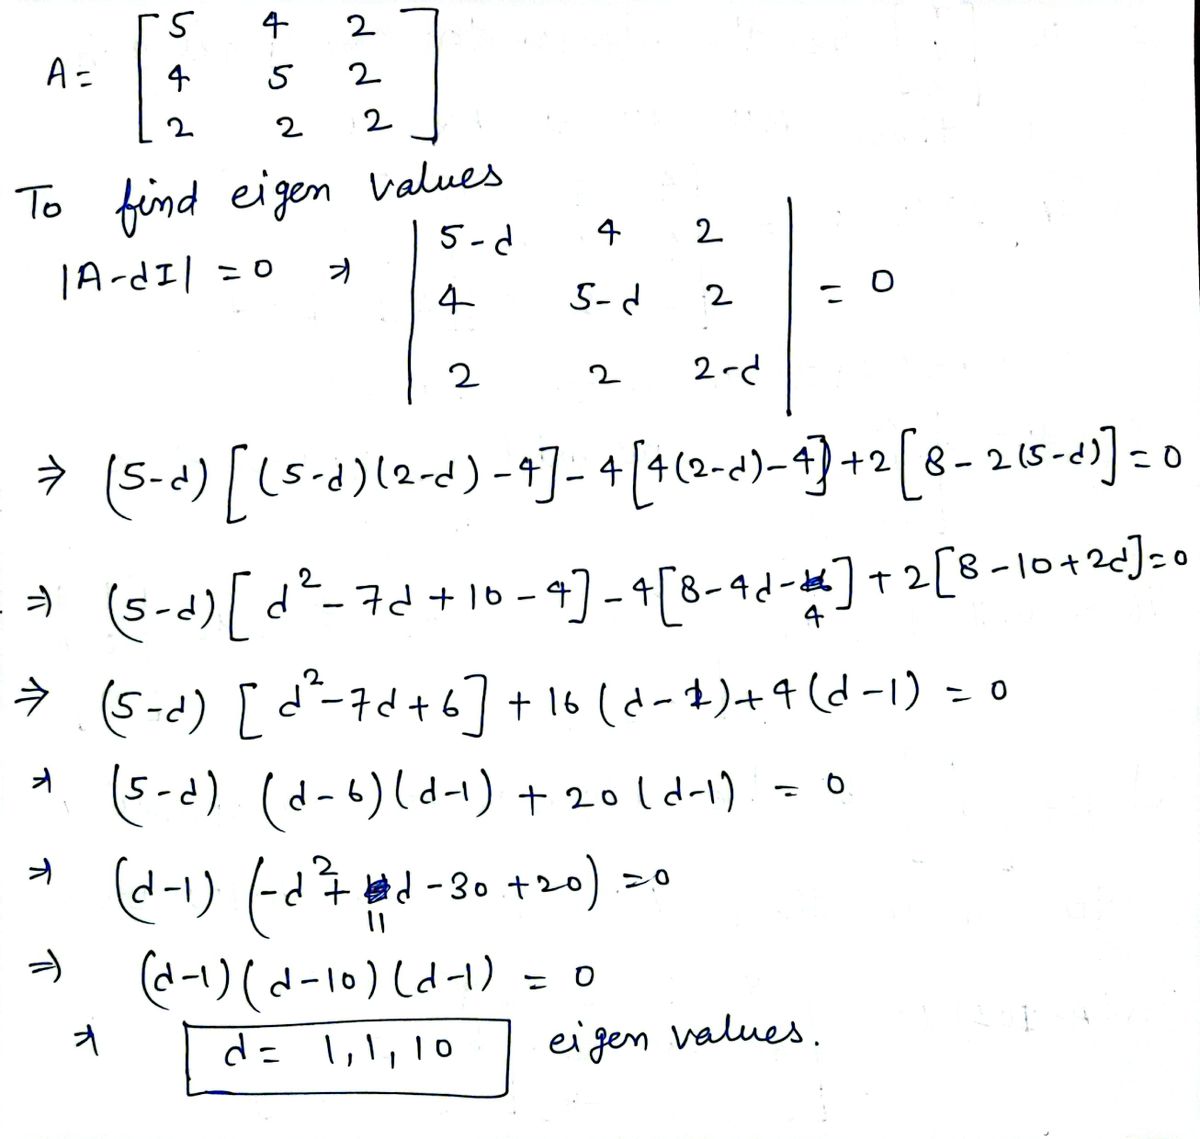 A = [ 5 4 2
4 5 2
2 2 2 ]
To find eigen values
|A-dI| = 0 ⇒ | 5-d 4 2
4 5-d 2
2 2 2-d | = 0
⇒ (5-d) [(5-d)(2-d) -4] - 4[4(2-d)-4] +2[8-2(5-d)] = 0
⇒ (5-d) [d²-7d+10-4] -4[8-4d-4] + 2[8-10+2d]=0
⇒ (5-d) [d²-7d+6] + 16(d-1)+4(d-1) = 0
⇒ (5-d) (d-6)(d-1) + 20(d-1) = 0
⇒ (d-1) (-d²+11d-30+20) =0
⇒ (d-1)(d-10)(d-1) = 0
⇒ d = 1,1,10 eigen values.